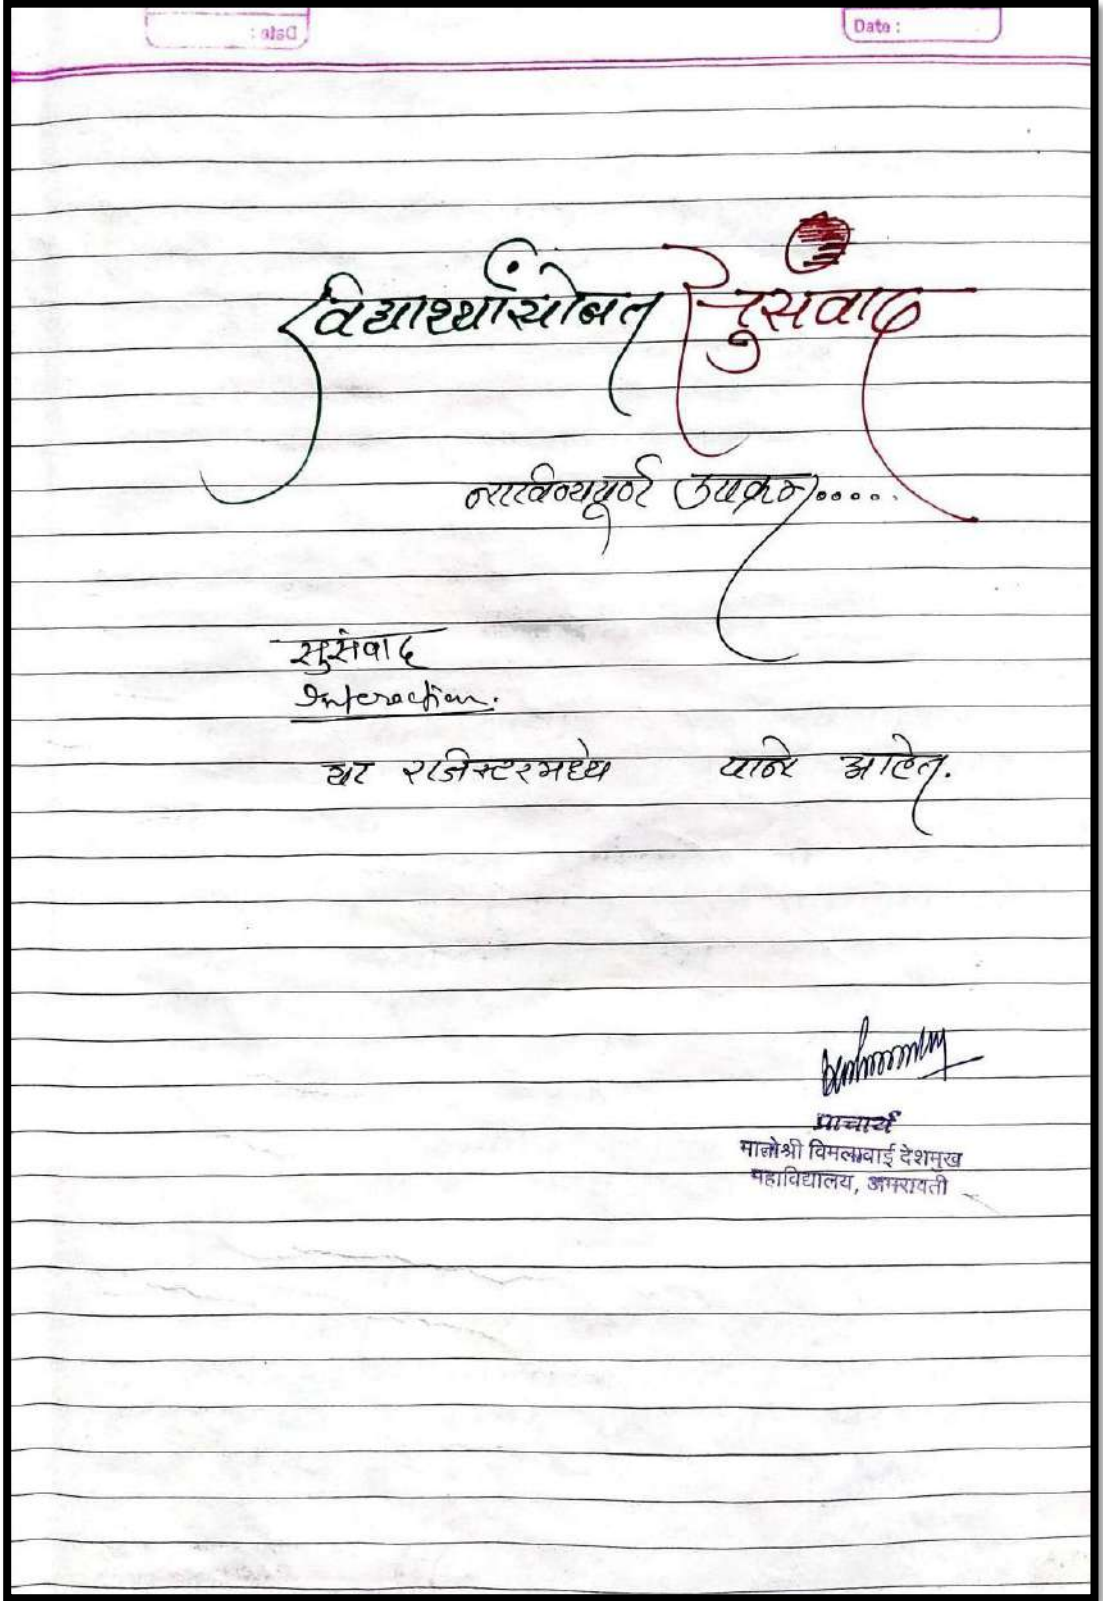 Date :
विद्यार्थ्यांसोबत सुसंवाद
नाविन्यपूर्ण उपक्रम.....
सुसंवाद
Interaction.
ह्या रजिस्टरमध्ये पाने आहेत.
प्राचार्य
मातोश्री विमलाबाई देशमुख
महाविद्यालय, अमरावती